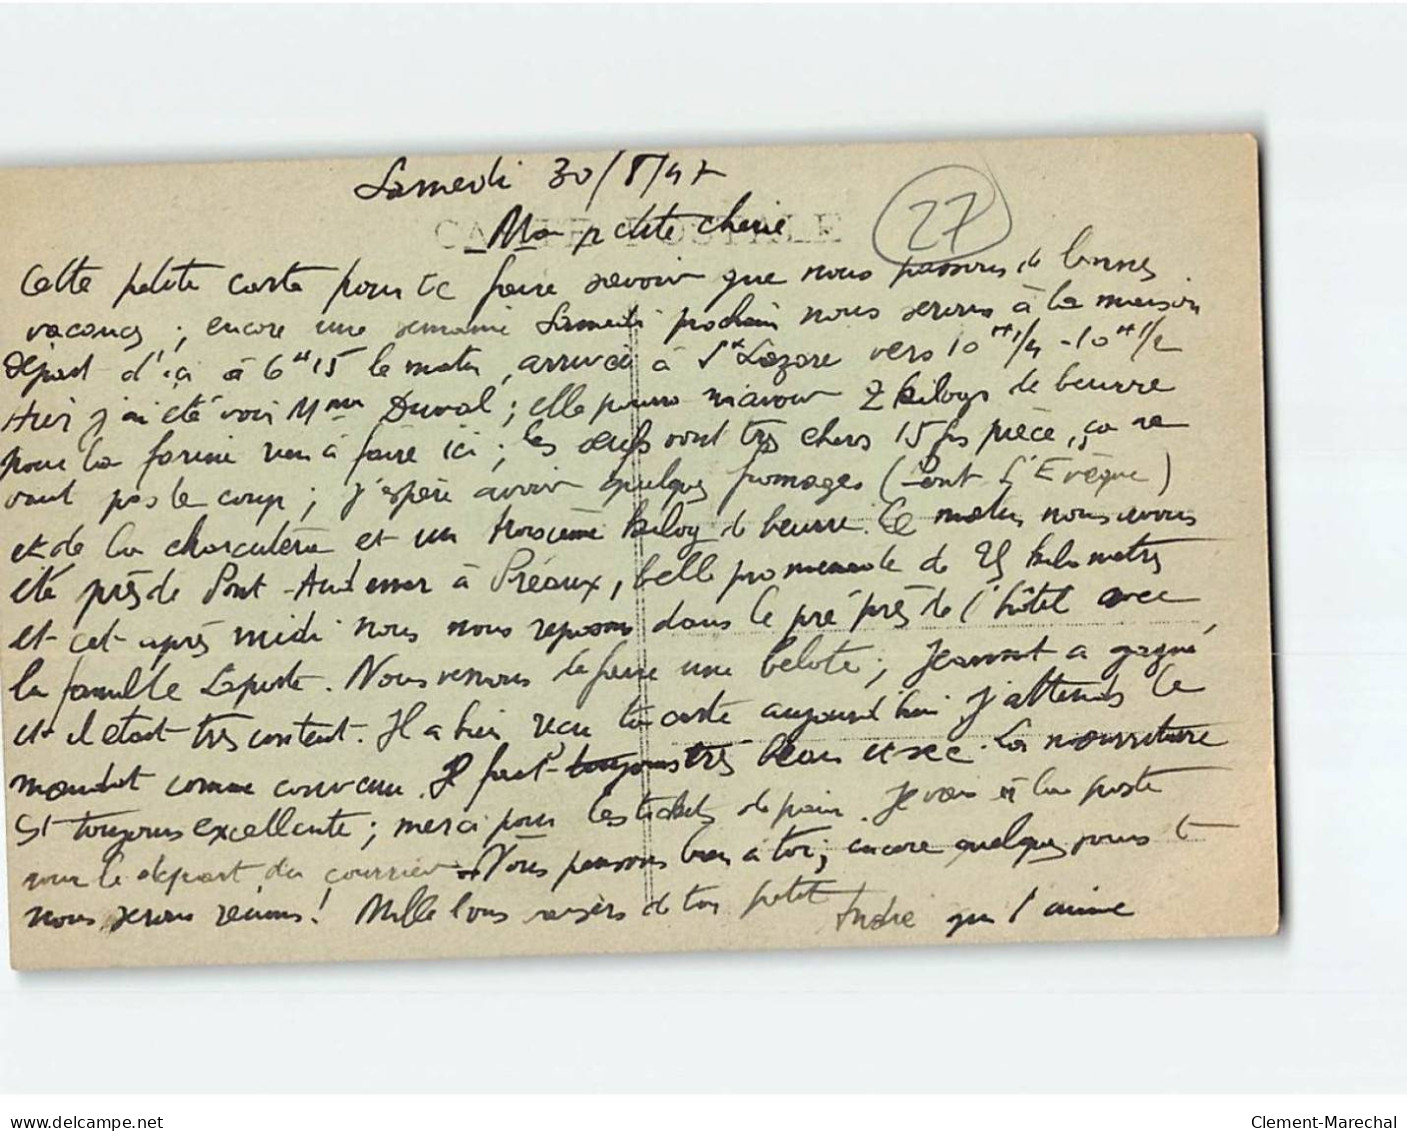 Samedi 30/8/47
27
CARTE POSTALE
Mon p'tite chérie
Cette petite carte pour te faire savoir que nous passons de bonnes
vacances ; encore une semaine Samedi prochain nous serons à la maison
départ d'ici à 6H15 le matin, arrivée à St Lazare vers 10H1/4 - 10H1/2
Hier j'ai été voir Mme Duval ; elle pourra m'avoir 2 kilogs de beurre
pour la farine rien à faire ici ; les oeufs sont très chers 15 frs pièce, ça ne
vaut pas le coup ; j'espère avoir quelques fromages (Pont L'Evêque)
et de la charcuterie et un troisième kilog de beurre. Ce matin nous avons
été près de Pont-Audemer à Préaux, belle promenade de 25 kilomètres
et cet après midi nous nous reposons dans le pré près de l'hôtel avec
la famille Laposte. Nous venons de faire une belote ; Jeannot a gagné
et il était très content. Il a bien reçu ta carte aujourd'hui j'attends le
mandat comme convenu. Il fait toujours très beau et sec. La nourriture
est toujours excellente ; merci pour les tickets de pain. Je vais à la poste
pour le départ du courrier. Nous pensons bien à toi, encore quelques jours et
nous serons réunis ! Mille bons baisers de ton petit André qui t'aime
www.delcampe.net
Clement-Marechal